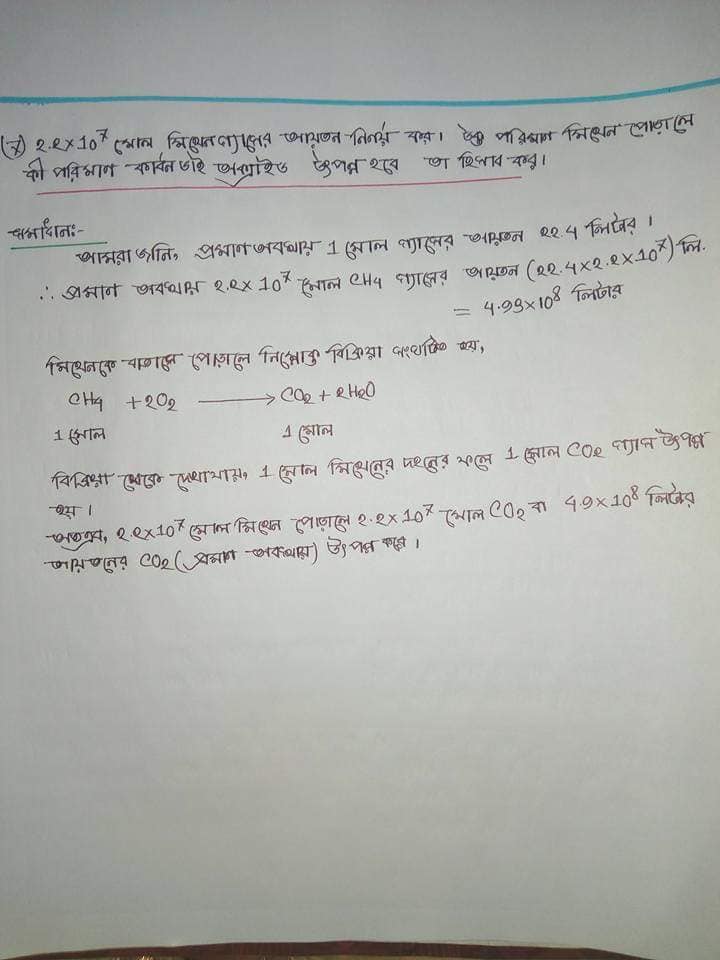 (7) 2.2×10⁷ মোল মিথেন গ্যাসের আয়তন নির্ণয় কর। উক্ত পরিমান মিথেন পোড়ালে
কী পরিমান কার্বন ডাই অক্সাইড উৎপন্ন হবে তা হিসাব কর।
সমাধান:-
আমরা জানি, প্রমান অবস্থায় 1 মোল গ্যাসের আয়তন 22.4 লিটার।
∴ প্রমান অবস্থায় 2.2×10⁷ মোল CH4 গ্যাসের আয়তন (22.4×2.2×10⁷) লি.
= 4.93×10⁸ লিটার
মিথেনকে বাতাসে পোড়ালে নিম্নোক্ত বিক্রিয়া সংঘটিত হয়,
CH4 + 2O2 ⟶ CO2 + 2H2O
1 মোল 1 মোল
বিক্রিয়া থেকে দেখাযায়, 1 মোল মিথেনের দহনের ফলে 1 মোল CO2 গ্যাস উৎপন্ন
হয়।
অতএব, 2.2×10⁷ মোল মিথেন পোড়ালে 2.2×10⁷ মোল CO2 বা 4.9×10⁸ লিটার
আয়তনের CO2 (প্রমান অবস্থায়) উৎপন্ন করে।